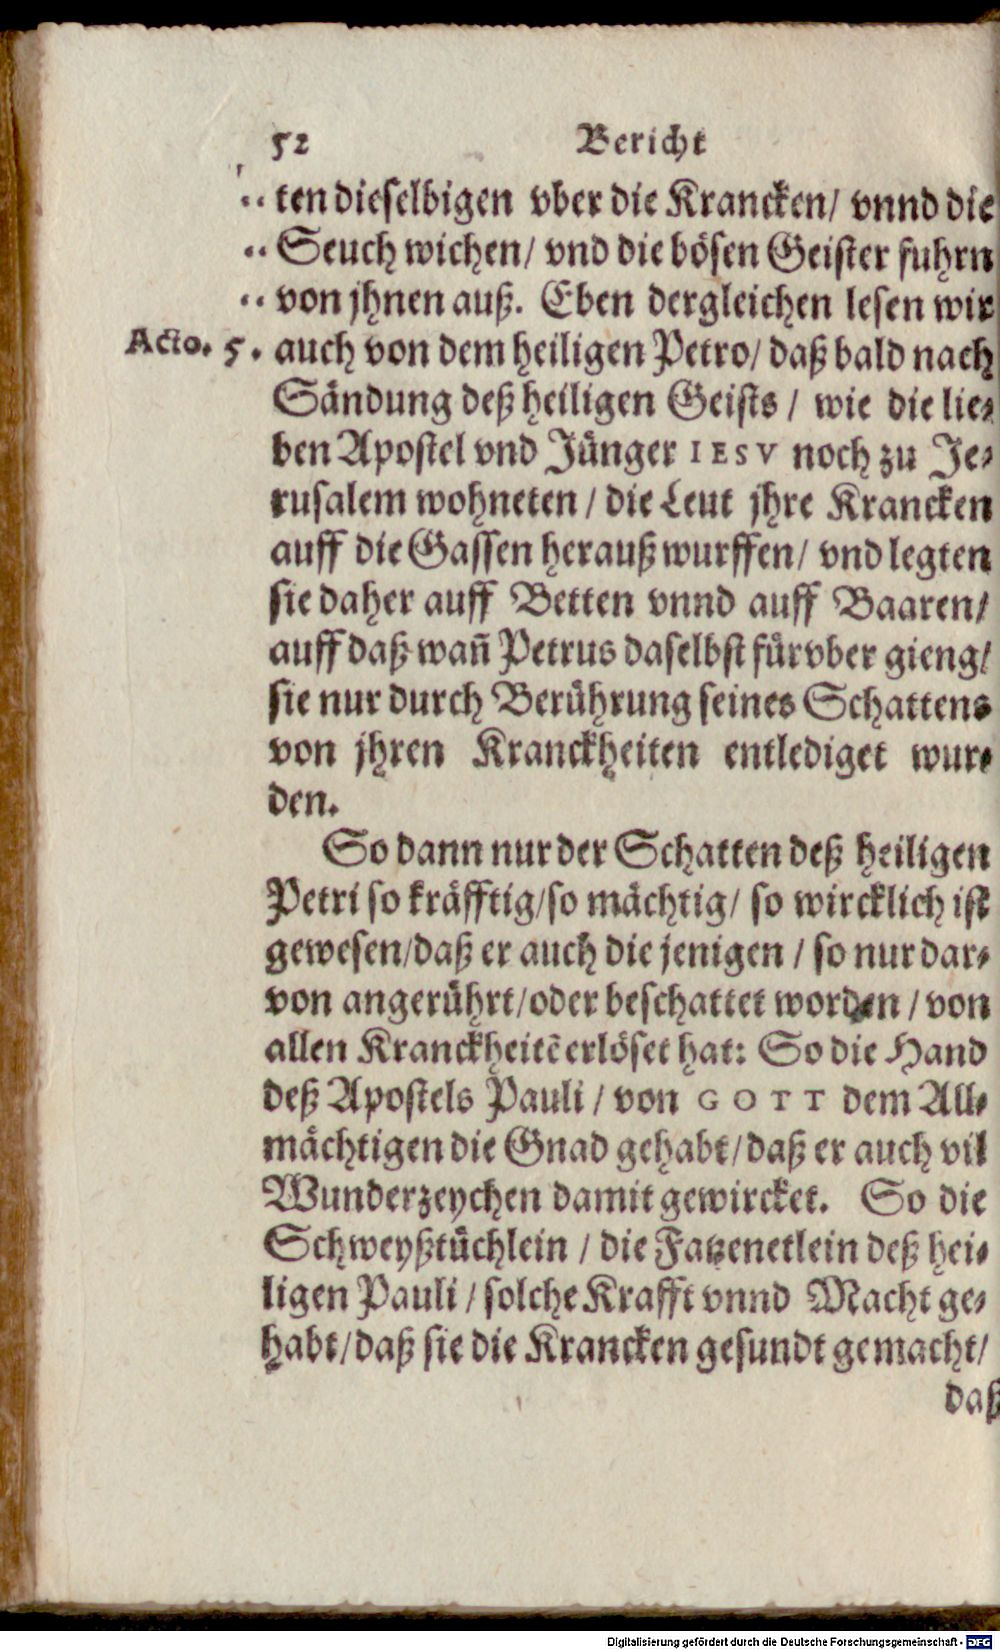 52 Bericht
„ten dieselbigen vber die Krancken/ vnnd die
„Seuch wichen/ vnd die bösen Geister fuhrn
„von jhnen auß. Eben dergleichen lesen wir
Acto. 5. auch von dem heiligen Petro/ daß bald nach
Sändung deß heiligen Geists / wie die lie-
ben Apostel vnd Jünger IESV noch zu Je-
rusalem wohneten / die Leut jhre Krancken
auff die Gassen herauß wurffen/ vnd legten
sie daher auff Betten vnnd auff Baaren/
auff daß wañ Petrus daselbst fürvber gieng/
sie nur durch Berührung seines Schattens
von jhren Kranckheiten entlediget wur-
den.
So dann nur der Schatten deß heiligen
Petri so kräfftig/so mächtig/ so wircklich ist
gewesen/daß er auch die jenigen / so nur dar-
von angerührt/oder beschattet worden / von
allen Kranckheitẽ erlöset hat: So die Hand
deß Apostels Pauli / von GOTT dem All-
mächtigen die Gnad gehabt/daß er auch vil
Wunderzeychen damit gewircket. So die
Schweyßtüchlein / die Fatzenetlein deß hei-
ligen Pauli / solche Krafft vnnd Macht ge-
habt/daß sie die Krancken gesundt gemacht/
daß
Digitalisierung gefördert durch die Deutsche Forschungsgemeinschaft - DFG